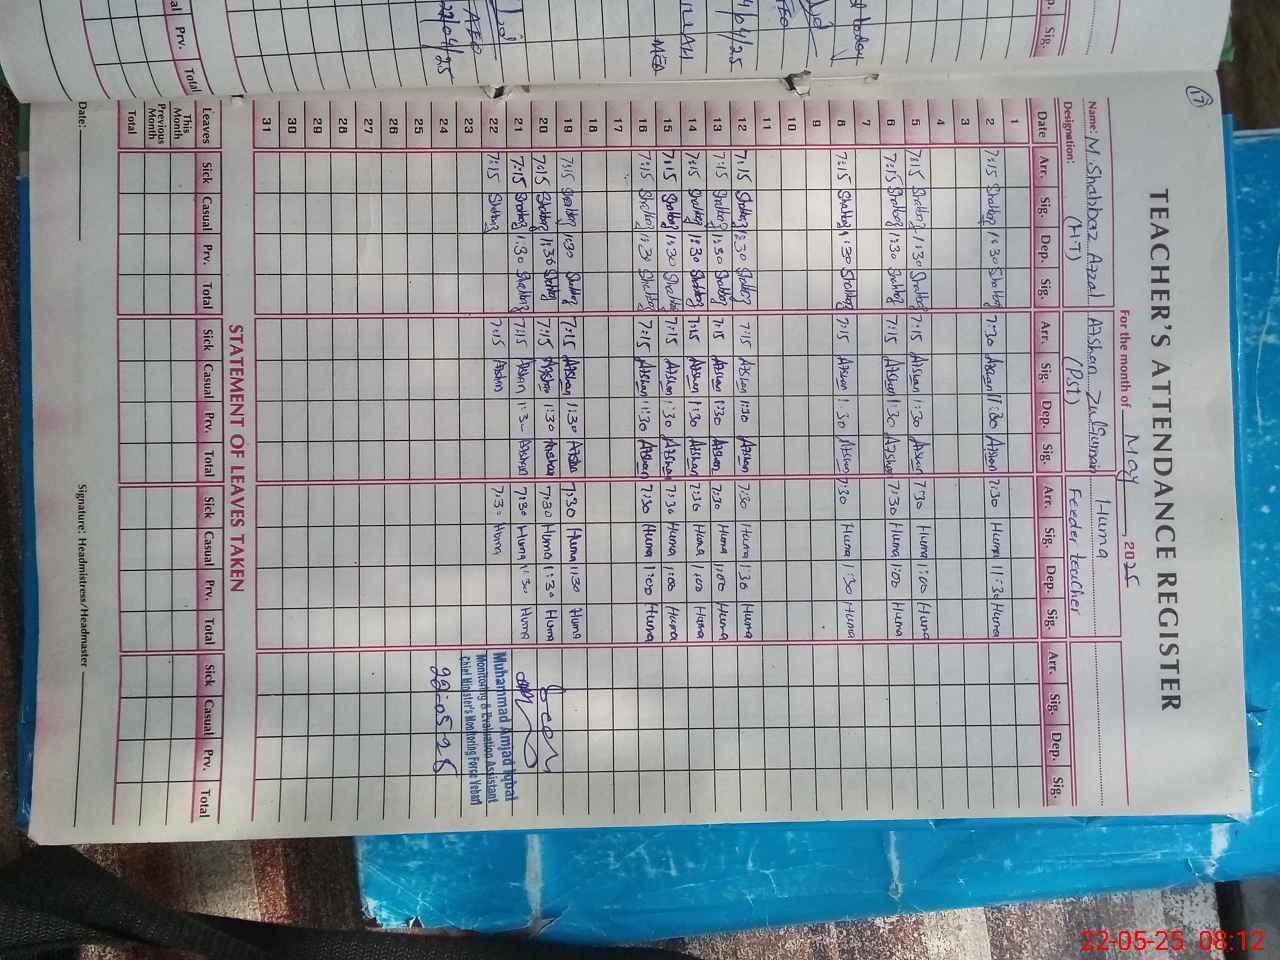 17
TEACHER'S ATTENDANCE REGISTER
For the month of May, 2025
Name: M. Shahbaz Afzal Afshan Zulqurnain Huma
Designation: (H.T) (PST) Feeder teacher
Date Arr. Sig. Dep. Sig. Arr. Sig. Dep. Sig. Arr. Sig. Dep. Sig. Arr. Sig. Dep. Sig.
1
2 7:15 Shahbaz 1:30 Shahbaz 7:30 Afshan 11:30 Afshan 7:30 Huma 11:30 Huma
3
4
5 7:15 Shahbaz 1:30 Shahbaz 7:15 Afshan 1:30 Afshan 7:30 Huma 1:00 Huma
6 7:15 Shahbaz 1:30 Shahbaz 7:15 Afshan 1:30 Afshan 7:30 Huma 1:00 Huma
7
8 7:15 Shahbaz 1:30 Shahbaz 7:15 Afshan 1:30 Afshan 7:30 Huma 1:30 Huma
9
10
11
12 7:15 Shahbaz 1:30 Shahbaz 7:15 Afshan 1:30 Afshan 7:30 Huma 1:30 Huma
13 7:15 Shahbaz 1:30 Shahbaz 7:15 Afshan 1:30 Afshan 7:30 Huma 1:00 Huma
14 7:15 Shahbaz 1:30 Shahbaz 7:15 Afshan 1:30 Afshan 7:30 Huma 1:00 Huma
15 7:15 Shahbaz 1:30 Shahbaz 7:15 Afshan 1:30 Afshan 7:30 Huma 1:00 Huma
16 7:15 Shahbaz 1:30 Shahbaz 7:15 Afshan 1:30 Afshan 7:30 Huma 1:00 Huma
17
18
19 7:15 Shahbaz 1:30 Shahbaz 7:15 Afshan 1:30 Afshan 7:30 Huma 1:30 Huma
20 7:15 Shahbaz 1:30 Shahbaz 7:15 Afshan 1:30 Afshan 7:30 Huma 1:30 Huma
21 7:15 Shahbaz 1:30 Shahbaz 7:15 Afshan 1:3- Afshan 7:30 Huma 1:30 Huma
22 7:15 Shahbaz 7:15 Afshan 7:30 Huma
23
24
25
26
27
28
29
30
31
Muhammad Amjad Iqbal
Monitoring & Evaluation Assistant
Chief Minister's Monitoring Force Vehari
22-05-25
STATEMENT OF LEAVES TAKEN
Leaves Sick Casual Prv. Total Sick Casual Prv. Total Sick Casual Prv. Total Sick Casual Prv. Total
This Month
Previous Month
Total
Date: Signature: Headmistress/Headmaster
Sig.
Prv. Total
22/04/25
MEA
22-05-25 08:12